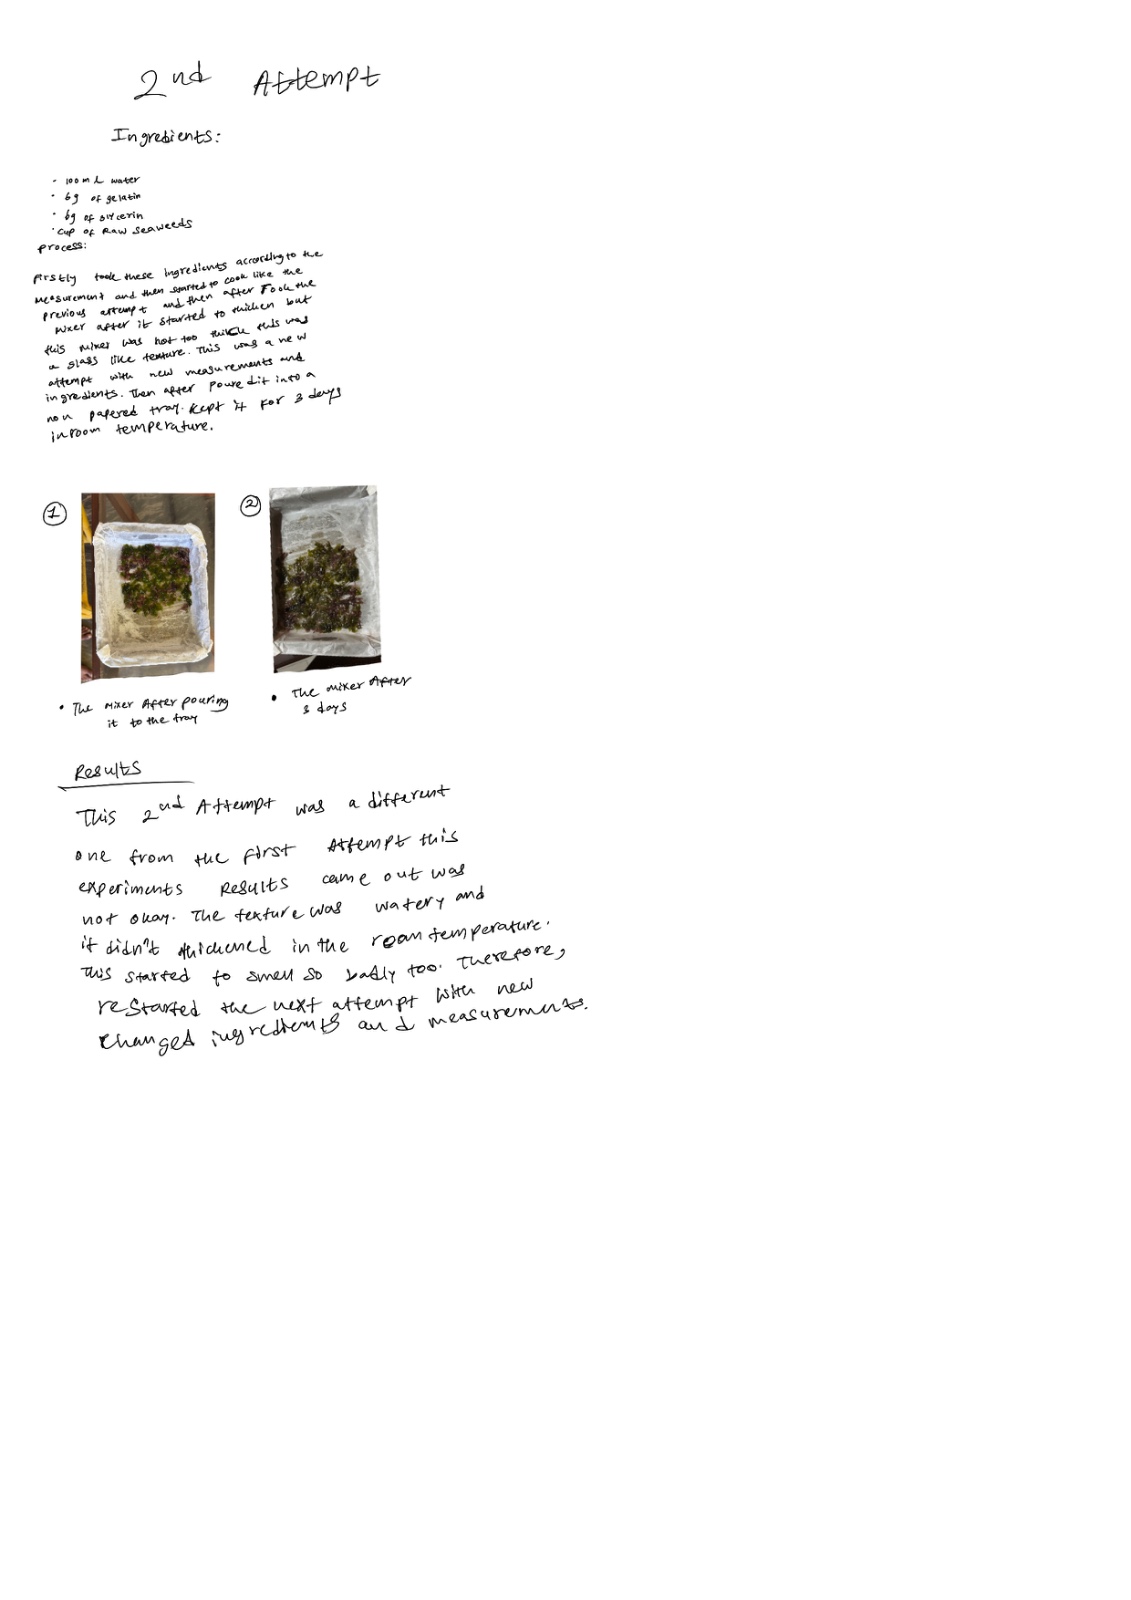 2nd Attempt
Ingredients:
- 100ml water
· 6g of gelatin
· 6g of glycerin
· cup of Raw seaweeds
process:
firstly took these ingredients according to the
measurement and then started to cook like the
previous attempt and then after Took the
mixer after it started to thicken but
this mixer was not too thick this was
a glass like texture. This was a new
attempt with new measurements and
ingredients. Then after poured it into a
non papered tray. Kept it for 3 days
in room temperature.
1
2
• The mixer After pouring
it to the tray
• The mixer After
3 days
Results
This 2nd Attempt was a different
one from the first Attempt this
experiments Results came out was
not okay. The texture was watery and
it didn't thickened in the room temperature.
This started to smell so badly too. Therefore,
restarted the next attempt with new
changed ingredients and measurements.